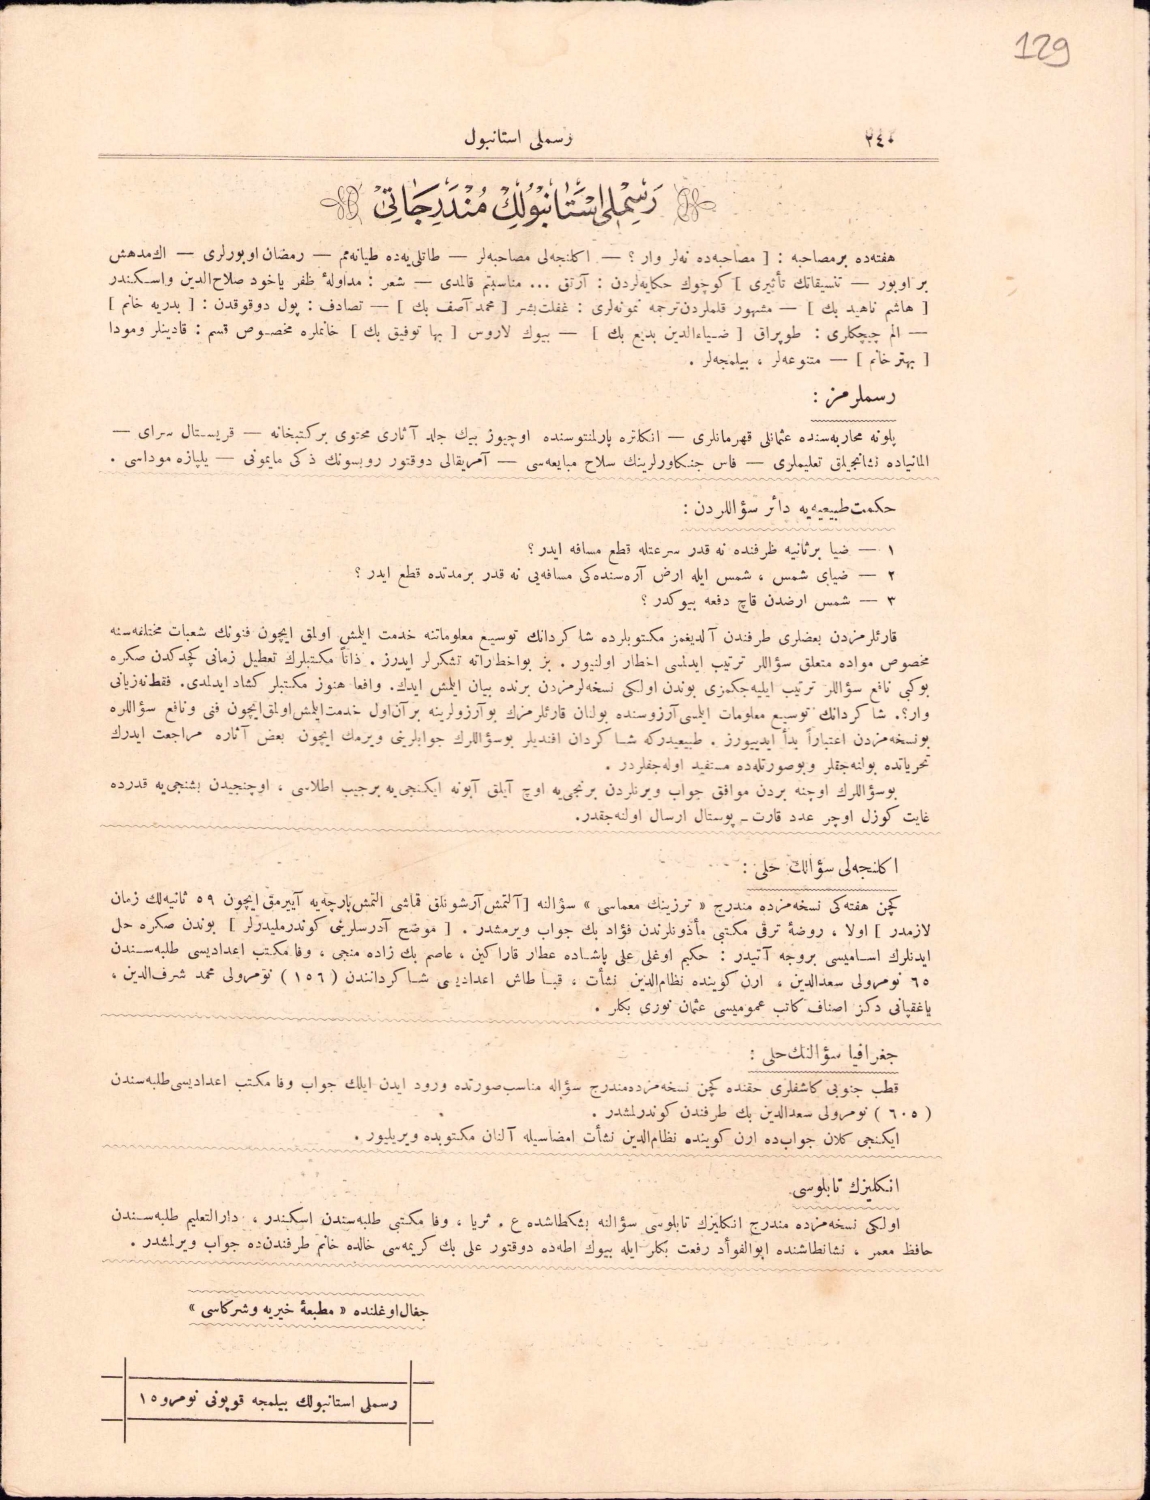 129
٢٤٠
رسملی استانبول
رسملی استانبولك مندرجاتی
هفته‌ده بر مصاحبه : [ مصاحبه‌ده نه‌لر وار ؟ — اكلنجه‌لی مصاحبه‌لر — طاتلی‌یه‌ده طیانه‌م — رمضان اوبورلری — اك‌مدهش
بر اوبور — تنسیقاتك تأثیری ] كوچوك حكایه‌لردن : آرتق ... مناسبتم قالمدی — شعر : مداولهٔ ظفر یاخود صلاح‌الدین واسكندر
[ هاشم ناهید بك ] — مشهور قلملردن‌ترجمه نمونه‌لری : غفلت‌بشر [ محمد آصف بك ] — تصادف : پول دوقوقدن : [ بدریه خانم ]
— الم چیچكلری : طوپراق [ ضیاءالدین بدیع بك ] — بیوك لاروس [ بها توفیق بك ] خانملره مخصوص قسم : قادینلر ومودا
[ بهتر خانم ] — متنوعه‌لر ، بیلمجه‌لر .
رسملرمز :
پلونه محاربه‌سنده عثمانلی قهرمانلری — انكلتره پارلمنتوسنده اوچیوز بیك جلد آثاری محتوی بركتبخانه — قریستال سرای —
المانیاده نشانجیلق تعلیملری — فاس جنكاورلرینك سلاح مبایعه‌سی — آمریقالی دوقتور روبسونك ذكی مایمونی — یلپازه موداسی .
حكمت‌طبیعیه‌یه دائر سؤاللردن :
١ — ضیا برثانیه ظرفنده نه قدر سرعتله قطع مسافه ایدر ؟
٢ — ضیای شمس ، شمس ایله ارض آره‌سنده‌كی مسافه‌یی نه قدر برمدتده قطع ایدر ؟
٣ — شمس ارضدن قاچ دفعه بیوكدر ؟
قارئلرمزدن بعضلری طرفندن آلدیغمز مكتوبلرده شاكردانك توسیع معلوماتنه خدمت ایلمش اولمق ایچون فنونك شعبات مختلفه‌سنه
مخصوص مواده متعلق سؤاللر ترتیب ایدلمسی اخطار اولنیور . بز بواخطاراته تشكرلر ایدرز . ذاتاً مكتبلرك تعطیل زمانی كچدكدن صكره
بوكبی نافع سؤاللر ترتیب ایلیه‌جكمزی بوندن اولكی نسخه‌لرمزدن برنده بیان ایلمش ایدك. واقعا هنوز مكتبلر كشاد ایدلمدی. فقط‌نه‌زیانی
وار؟. شاكردانك توسیع معلومات ایلمسی آرزوسنده بولنان قارئلرمزك بوآرزولرینه برآن‌اول خدمت‌ایلمش‌اولمق‌ایچون فنی ونافع سؤاللره
بونسخه‌مزدن اعتباراً بدأ ایدییورز . طبیعیدركه شاكردان افندیلر بوسؤاللرك جوابلرینی ویرمك ایچون بعض آثاره مراجعت ایدرك
تحریاتده بولنه‌جقلر وبوصورتله‌ده مستفید اوله‌جقلردر .
بوسؤاللرك اوچنه بردن موافق جواب ویرنلردن برنجی‌یه اوچ آیلق آبونه ایكنجی‌یه برجیب اطلاسی ، اوچنجیدن بشنجی‌یه قدرده
غایت كوزل اوچر عدد قارت - پوستال ارسال اولنه‌جقدر.
اكلنجه‌لی سؤالك حلی :
كچن هفته‌كی نسخه‌مزده مندرج « ترزینك معماسی » سؤالنه [آلتمش‌آرشونلق قماشی التمش‌پارچه‌یه آییرمق‌ایچون ٥٩ ثانیه‌لك زمان
لازمدر ] اولا ، روضهٔ ترقی مكتبی مأذونلرندن فؤاد بك جواب ویرمشدر . [ موضح آدرسلرینی كوندرملیدرلر ] بوندن صكره حل
ایدنلرك اسامیسی بروجه آتیدر : حكیم اوغلی علی پاشاده عطار قاراكین ، عاصم بك زاده منجی ، وفا مكتب اعدادیسی طلبه‌سندن
٦٥ نومرولی سعدالدین ، ارن كوینده نظام‌الدین نشأت ، قبا طاش اعدادیسی شاكرداندن ( ١٥٦ ) نومرولی محمد شرف‌الدین ،
یاغقپانی دكز اصناف كاتب عمومیسی عثمان نوری بكلر .
جغرافیا سؤالنك‌حلی :
قطب جنوبی كاشفلری حقنده كچن نسخه‌مزده‌مندرج سؤاله مناسب‌صورتده ورود ایدن ایلك جواب وفا مكتب اعدادیسی‌طلبه‌سندن
( ٦٠٥ ) نومرولی سعدالدین بك طرفندن كوندرلمشدر .
ایكنجی كلان جواب‌ده ارن كوینده نظام‌الدین نشأت امضاسیله آلنان مكتوبده ویریلیور .
انكلیزك تابلوسی
اولكی نسخه‌مزده مندرج انكلیزك تابلوسی سؤالنه بشكطاشده ع . ثریا ، وفا مكتبی طلبه‌سندن اسكندر ، دارالتعلیم طلبه‌سندن
حافظ معمر ، نشانطاشنده ابوالفؤاد رفعت بكلر ایله بیوك اطه‌ده دوقتور علی بك كریمه‌سی خالده خانم طرفندن‌ده جواب ویرلمشدر .
جغال‌اوغلنده « مطبعهٔ خیریه وشركاسی »
رسملی استانبولك بیلمجه قوپونی نومرو ١٥